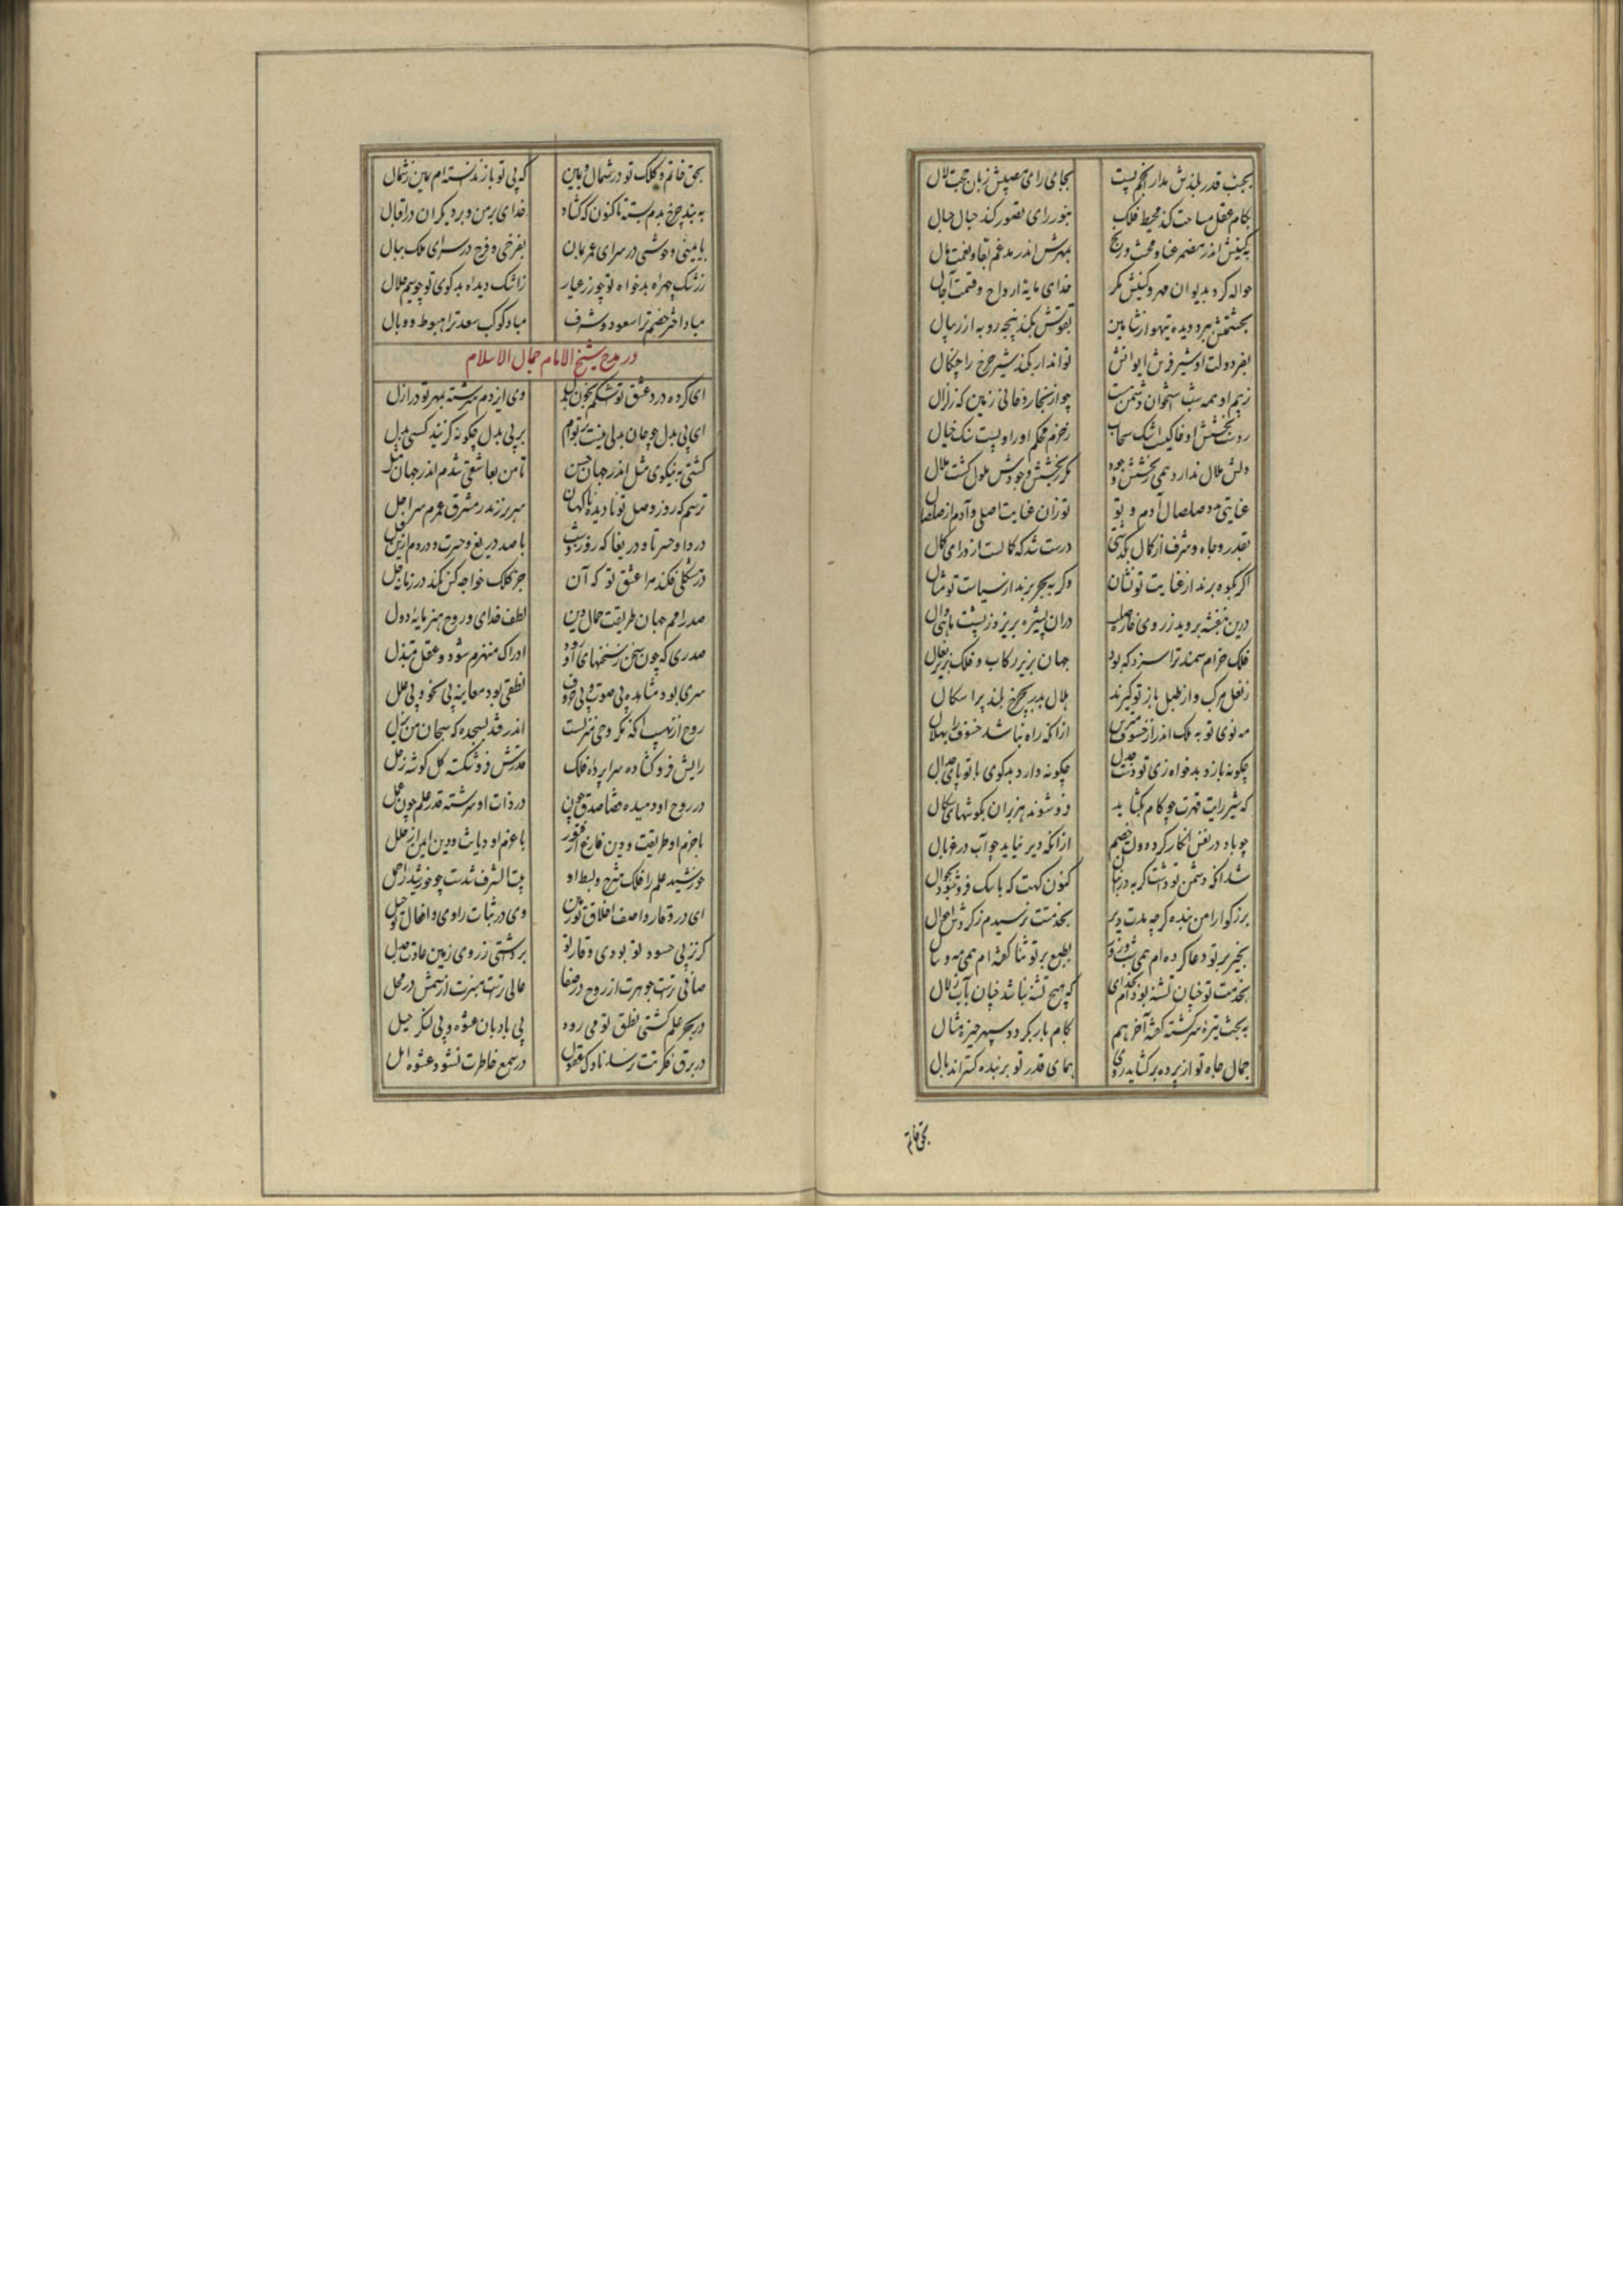 بجنب قدر بلندش مدار انجم پست بجای رای مصیبش زبان حجت لال
بکام عقل مساحت کند محیط فلک بنور رای تصور کند خیال خیال
بکینش اندر مضمر عنا و محنت و رنج بمهرش اندر مدغم بقا و نعمت و مال
حواله کرد بدیوان مهر و کینش مکر خدای مایه ارواح و قسمت آجال
بحشمتش ببرد دیده تیهو از شاهین بقوتش بکند پنجه روبه از ریبال
بفر دولت او شیر فرش ایوانش تواند ار بکند شیر چرخ را چنگال
ز بیم او همه شب استخوان دشمن چو از بخار دخانی زمین که زلزال
ز بخشش او خاکیست اشک سحاب ز حزم محکم او را و پست نک خیال
دلش ملال ندارد همی ز بخشش و جود مکر ز بخشش وجودش ملول گشت ملال
غایتی و صلصال آدم و تو تو زان عنایت اصلی و آدم از صلصال
بقدر و جاه و شرف از کمال بکذشتی درست شد که کمالست از ورای کمال
اگر بکوه برند از عنایت تو نشان وگر به بحر برند از سیاست تو مثال
درین بنفشه بروید ز روی خاره صلب دران پشیزه بریزد ز پشت ماهی دال
فلک خرام سمند ترا سزد که بود جهان بزیر رکاب و فلک بزیر نعال
ز نعل مرکب و از طبل باز تو گیرند هلال بدر بچرخ بلند بر اشکال
مه نوی تو به ملک اندر از خسوف مترس ازانکه راه نباشد خسوف را بهلال
چگونه یازد بدخواه زی تو دست جدل چگونه دارد بدگوی با تو پای جدال
که شیر رایت قهرت چو کام بکشاید فرو شوند هزبران بگوشهای شکال
چو باد در قفس انگار کرده دولت خصم ازانکه دیر نپاید چو آب در غربال
شد انکه دشمن تو داشت گربه در انبان کنون گهت که با سک فرو شود بجوال
بزرگوارا من بنده گرچه مدت دیر بخدمتت نرسیدم ز گردش احوال
بخیر بر تو دعا کرده ام همی شب و روز بطبع بر تو ثنا گفته ام همی مه و سال
بخدمت تو چنان تشنه بوده ام بخدای که هیچ تشنه نباشد چنان بآب زلال
به بخت تیره سرگشته گفته آخر هم بکام باز بگردد سپهر خیره مثال
جمال جاه تو از پرده برگشاید روی همای قدر تو بر بنده گستراند بال
بحق خاتم
بحق خاتم و کلک تو در شمال و یمین که بی تو باز ندانسته ام یمین ز شمال
به بند چرخ بدم بسته تا کنون که گشاد خدای بر من و بر دیگران در اقبال
بایمنی و خوشی در سرای عمر بمان بفرخی و فرح در سرای ملک ببال
ز رشک چهره بدخواه تو چو زر عیار ز اشک دیده بدگوی تو چو سیم حلال
مباد اختر خصم ترا سعود و شرف مباد کوکب سعد ترا هبوط و وبال
در مدح شیخ الامام جمال الاسلام
ای کرده درد عشق تو اشکم بخون بدل وی از دم سرشته بمهر تو در ازل
ای بی بدل چو جان بدلی نیست بر توام بر بی بدل چگونه گزیند کسی بدل
گشتی به نیکوی مثل اندر جهان حسن تا من بعاشقی شدم اندر جهان مثل
ترسم که روز وصل تو نادیده ناگهان سر بر زند ز مشرق عمرم سر اجل
دردا و حسرتا و دریغا که روز و شب با صد دریغ و حسرت و دردم ازین قبل
در مشکلی فکند مرا عشق تو که آن جز کلک خواجه کس نکند در زمانه حل
صدر امم جهان طریقت جمال دین لطف خدای و روح هنر مایه دول
صدری که چون سخن ز سخنهای او رود ادراک منهزم شود و عقل مبتذل
سری بود مشاهده بی صوت و بی حروف نطقی بود معاینه بی سخو و بی علل
روح از نهیب آنکه مگر وحی منزلست اندر فتد بسجده که سبحان من نزل
رایش فرو گشاده سراپرده فلک قدرش فرو شکسته کل گوشه زحل
در روح او دمیده قضا صدق چون در ذات او سرشته قدر علم چون عمل
با حزم او طریقت و دین فارغ از فتور با عزم او دیانت و دین ایمن از خلل
خورشید علم را فلک شرح و بسط او بیت الشرف شدست چو خورشید را حمل
ای در وقار واصف اخلاق تو زمین وی در ثبات راوی افعال تو جبل
گر زی حسود تو بودی وقار تو برداشتی ز روی زمین عادت جدل
صافی ترست جوهرت از روح در صفا عالی ترست منبرت از شمس در محل
در بحر علم کشتی نطق تو می رود بی بادبان عشوه و بی لنگر حیل
در برق فکرتت نرسد ناوک عقول در سمع خاطرت نشود عشوه امل